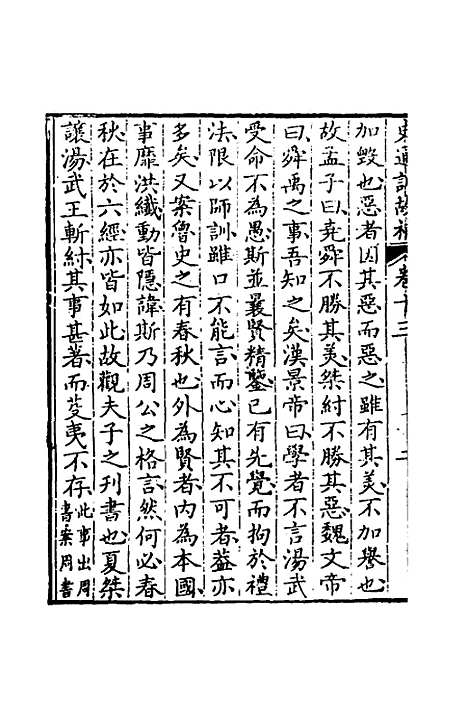 史通訓故補 卷十三
加毀也惡者因其惡而惡之雖有其美不加譽也
故孟子曰堯舜不勝其美桀紂不勝其惡魏文帝
曰舜禹之事吾知之矣漢景帝曰學者不言湯武
受命不為愚斯並曩賢精鑒已有先覺而拘於禮
法限以師訓雖口不能言而心知其不可者葢亦
多矣又案魯史之有春秋也外為賢者內為本國
事靡洪纖動皆隱諱斯乃周公之格言然何必春
秋在於六經亦皆如此故觀夫子之刊書也夏桀
讓湯武王斬紂其事甚著而芟夷不存
此事出周
書案周書